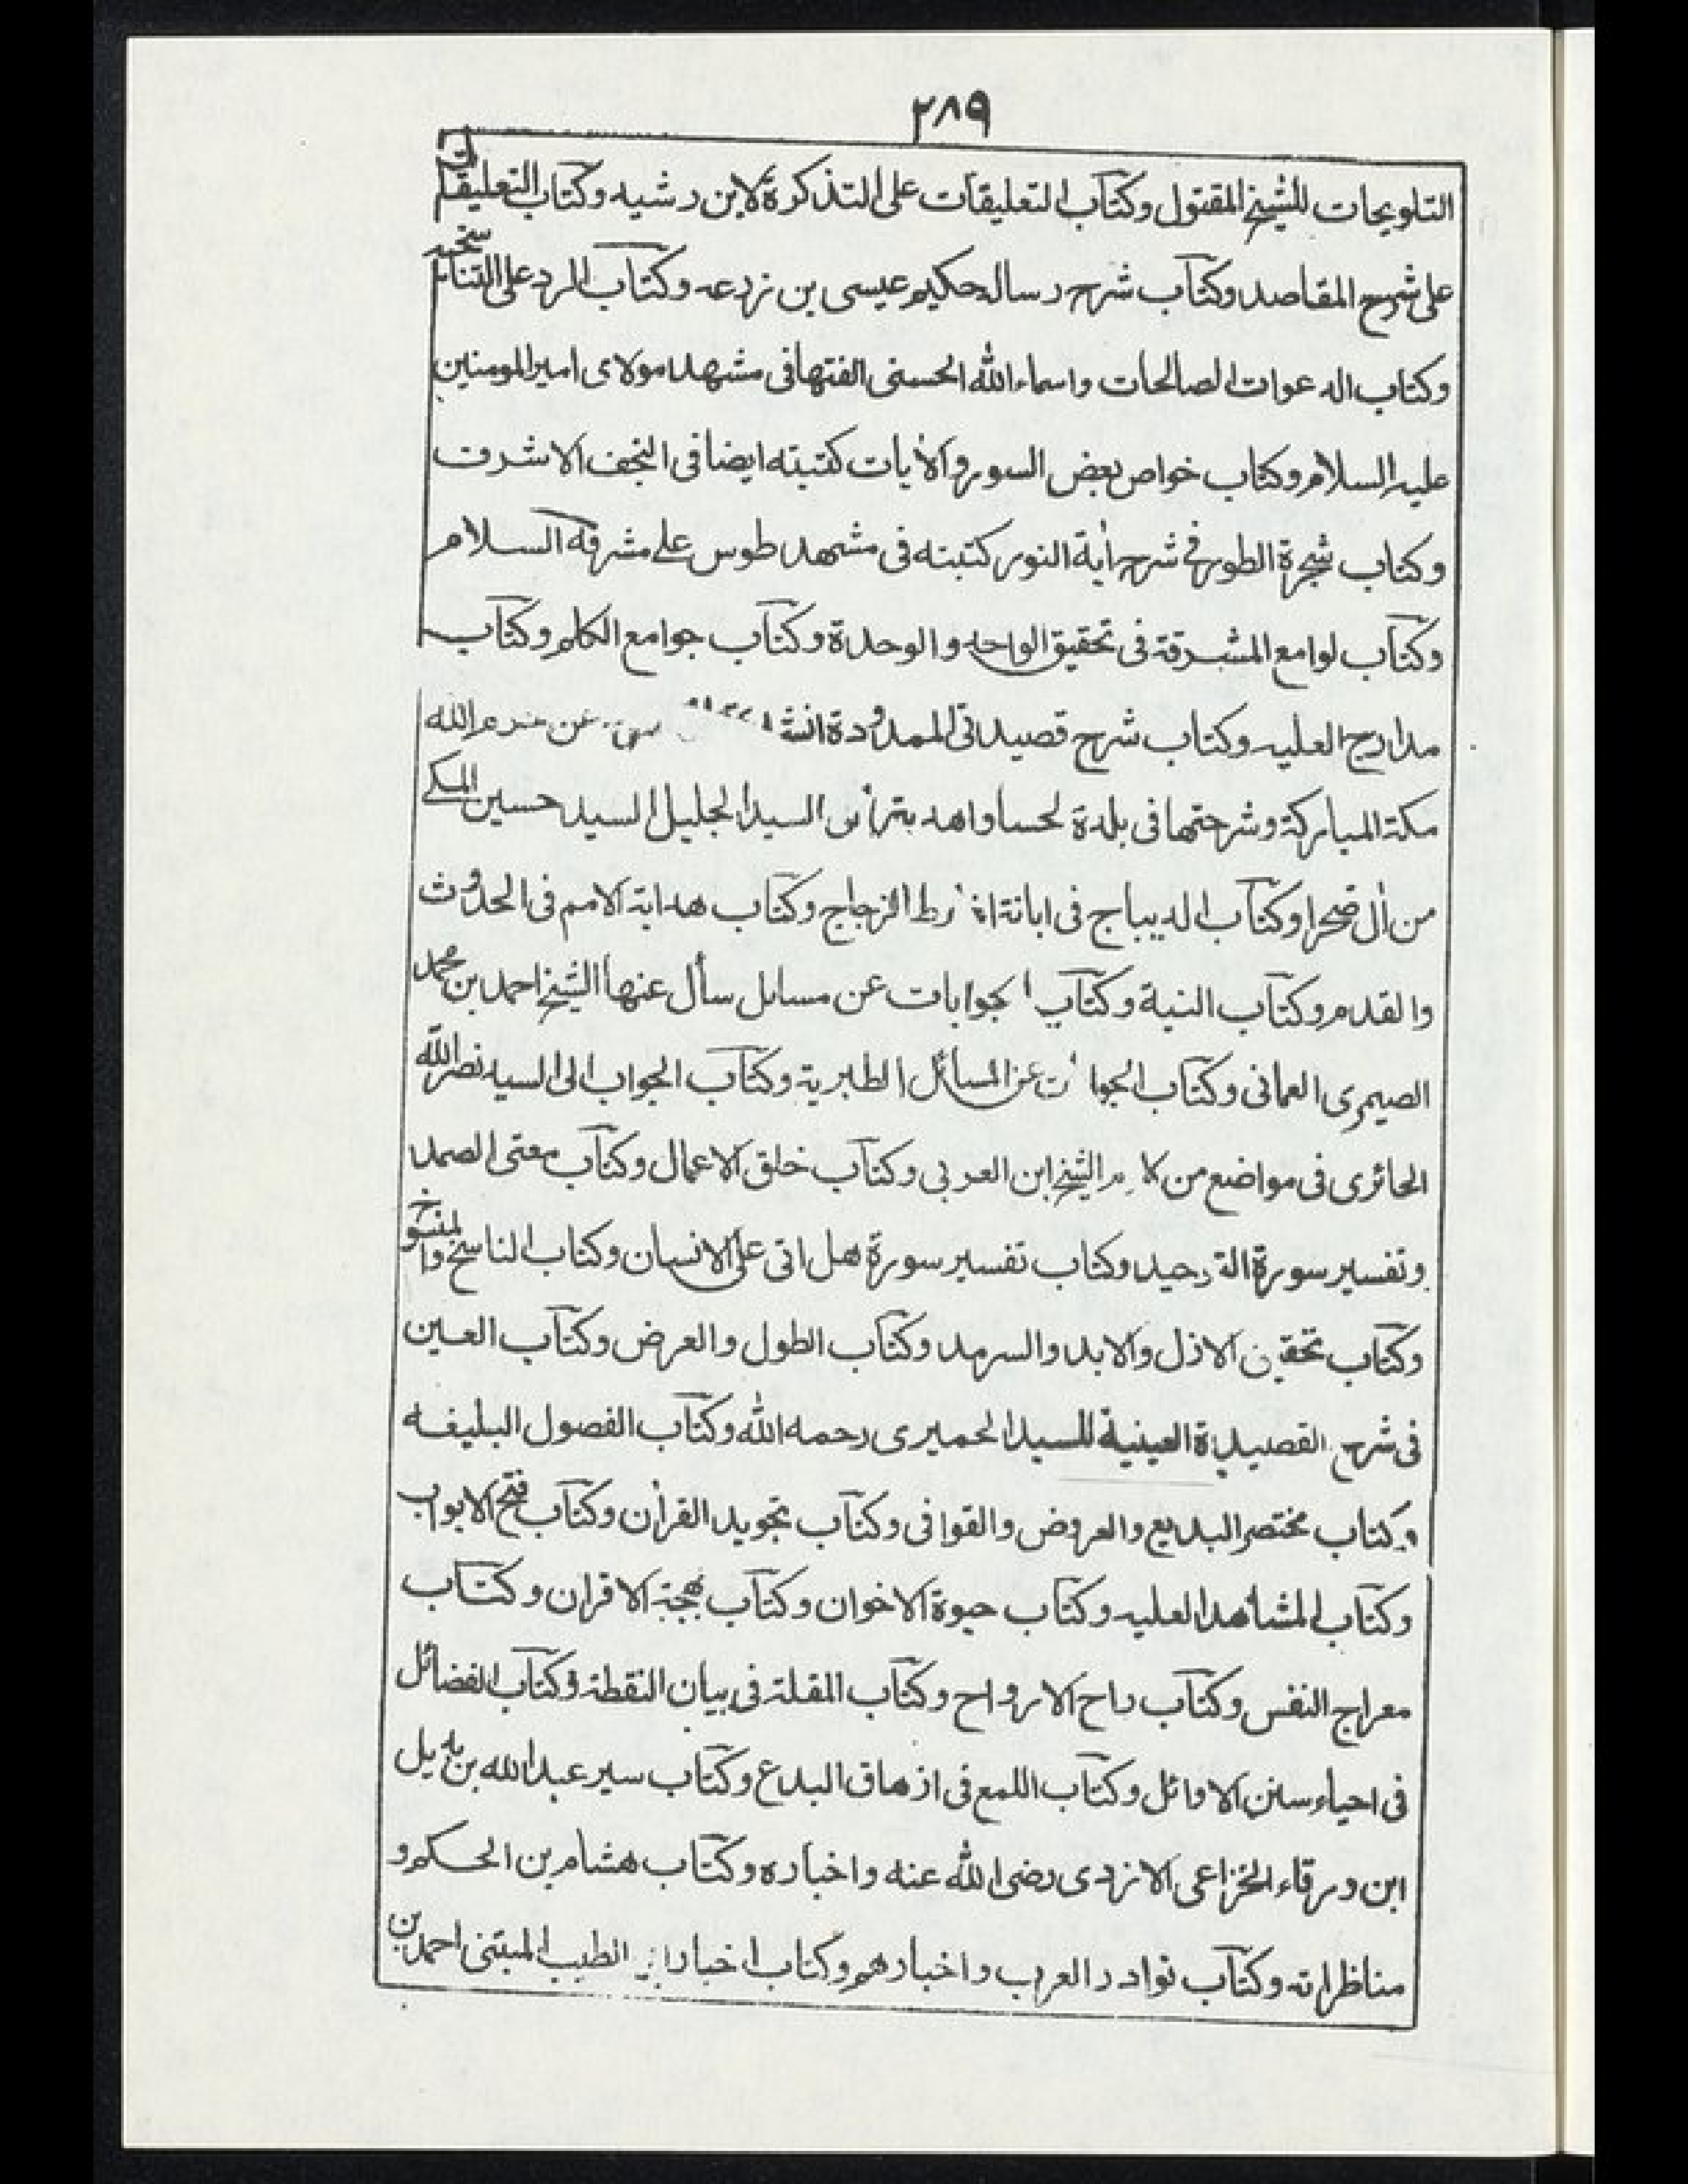 ٢٨٩
التلويحات للشيخ المقتول وكتاب التعليقات على التذكرة لابن رشيه وكتاب التعليقات
على شرح المقاصد وكتاب شرح رسالہ حكيم عيسى بن زرعہ وكتاب الرد على التناسخيه
وكتاب الدعوات الصالحات واسماء الله الحسنى الفتها فى مشهد مولاى امير المومنين
عليه السلام وكتاب خواص بعض السور والأيات كتبته ايضا فى النجف الاشرف
وكتاب شجرة الطور فى شرح اية النور كتبته فى مشهد طوس على مشرفه السلام
وكتاب لوامع المشرقة فى تحقيق الواحد والوحدة وكتاب جوامع الكلم وكتاب
مدارج العليه وكتاب شرح قصيدتى الممدودة الله
مكة المباركة وشرحتها فى بلدة لحسا السيد الجليل السيد حسين المكے
من أل وكتاب الديباج فى ابانة الزجاج وكتاب هداية الامم فى الحدوث
والقدم وكتاب النية وكتاب الجوابات عن مسايل سأل عنها الشيخ احمد بن محمد
الصيمرى العمانى وكتاب الجوابات عن المسائل الطبرية وكتاب الجواب الى السيد نصر الله
الحائرى فى مواضع من كلام الشيخ ابن العربى وكتاب خلق الاعمال وكتاب معنى الصمد
وتفسير سورة التوحيد وكتاب تفسير سورة هل اتى على الانسان وكتاب الناسخ والمنسوخ
وكتاب تحقيق الازل والابد والسرمد وكتاب الطول والعرض وكتاب العين
فى شرح القصيدة العينية للسيد الحميرى رحمه الله وكتاب الفصول البليغه
وكتاب مختصر البديع والعروض والقوافى وكتاب تجويد القرأن وكتاب فتح الابواب
وكتاب المشاهد العليه وكتاب حيوة الاخوان وكتاب بهجة الاقران وكتاب
معراج النفس وكتاب راح الارواح وكتاب المقلة فى بيان النقطة وكتاب الفضائل
فى احياء سنن الاوائل وكتاب اللمع فى ازهاق البدع وكتاب سير عبد الله بن بديل
ابن ورقاء الخزاعى الازدى رضى الله عنه واخباره وكتاب هشام بن الحكم و
مناظراته وكتاب نوادر العرب واخبارهم وكتاب اخبار الطيب المتبنى احمد بن